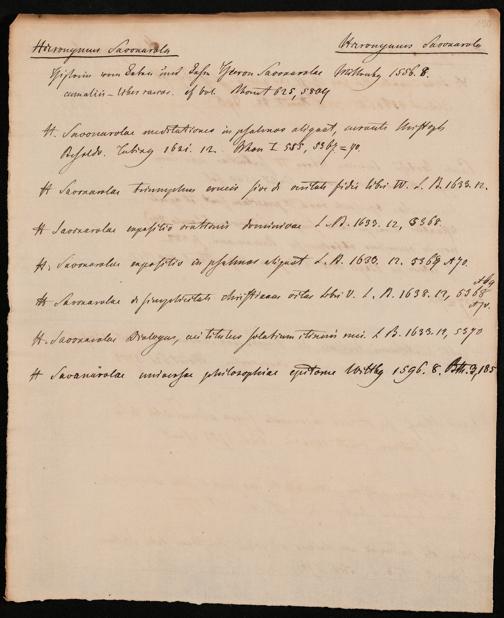 Hieronymus Savonarola Hieronymus Savonarola
Historie vom Leben und Lehr Hieron Savonarolae Wittenbg 1556. 8.
liber rarus. cf 825, 5809
H. Savonarolae meditationes in psalmos aliquot, curante Christoph
Besoldo. Tubing 1621. 12. I 555, 5367=70.
H Savonarolae triumphus crucis sive de veritate fidei libri IV. L. B. 1633. 12.
H Savonarolae expositio orationis dominicae L. B. 1633. 12, 5368.
H. Savonarolae expositio in psalmos aliquot L. B. 1633. 12. 5369 A70.
H Savonarolae de simplicitate christianae vitae libri V. L. B. 1638. 12, 5368
H. Savonarolae Dialogus, cui titulus solatium itineris mei. L B. 1633. 12, 5370
H Savonarolae universae philosophiae epitome Wittbg 1596. 8. 3, 185